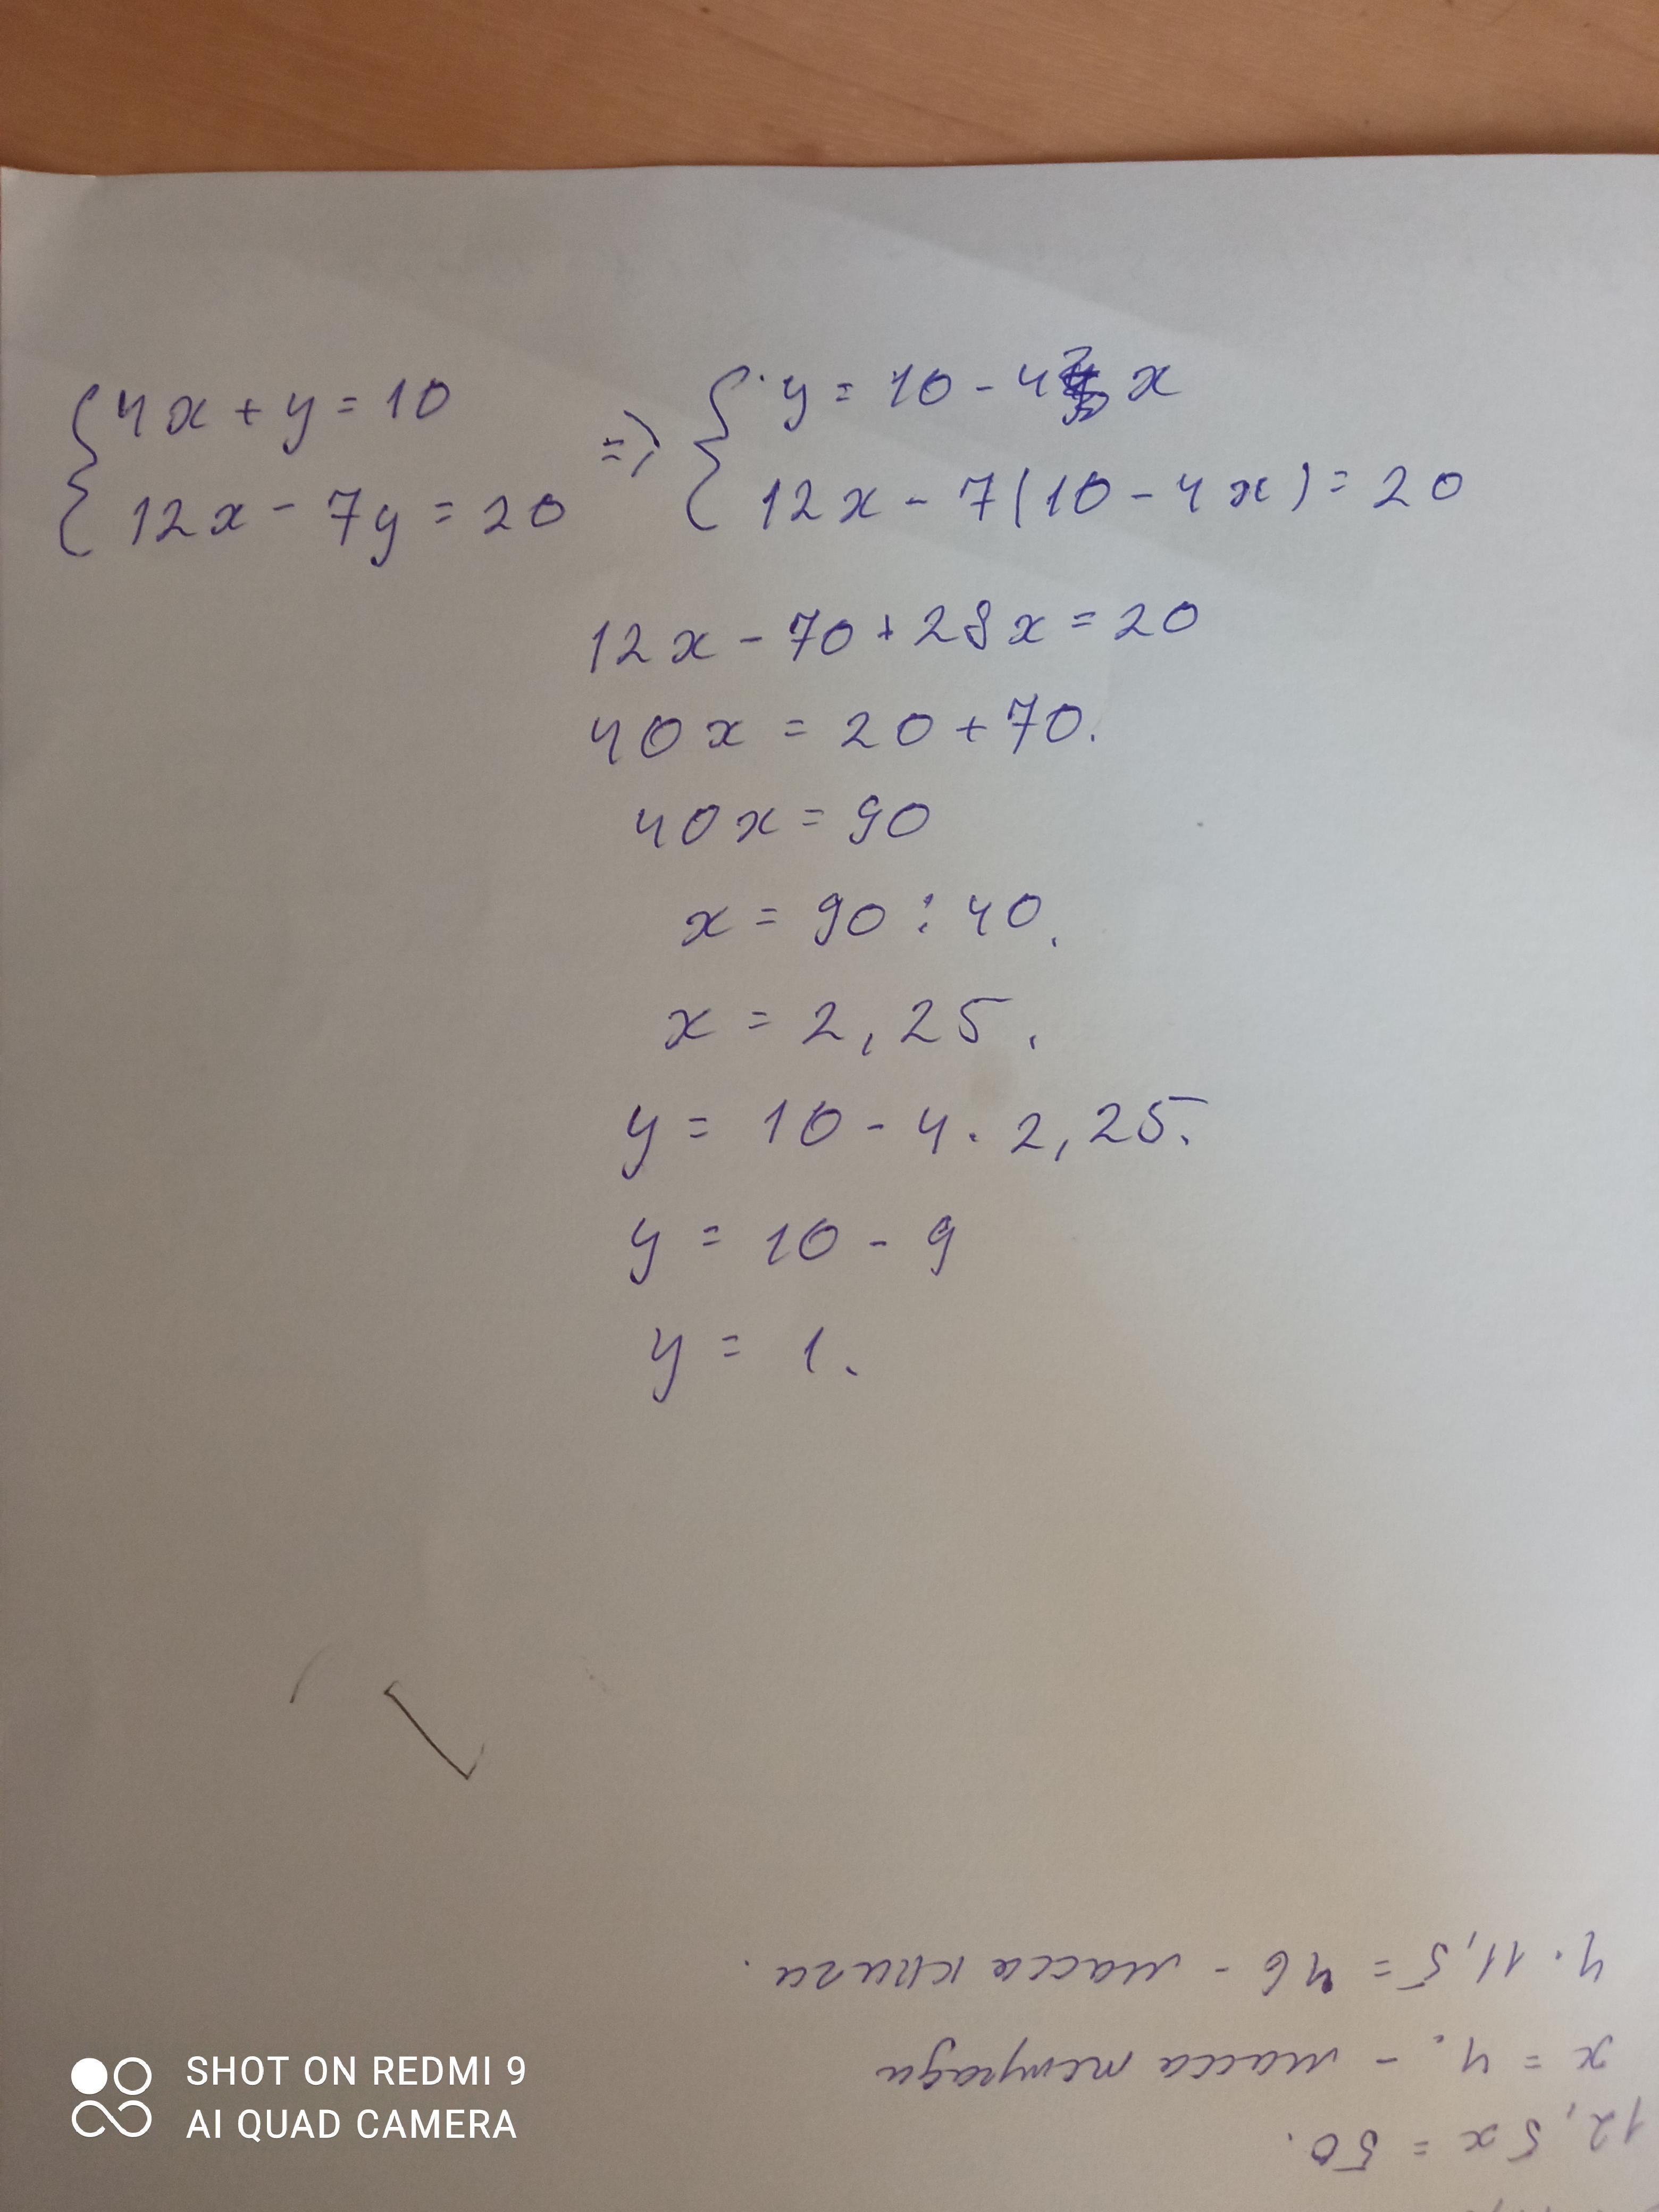 {4x + y = 10 => {y = 10 - 4 x
{12x - 7y = 20 {12x - 7(10 - 4x) = 20
12x - 70 + 28x = 20
40x = 20 + 70.
40x = 90
x = 90 : 40.
x = 2,25.
y = 10 - 4 · 2,25.
y = 10 - 9
y = 1.
12,5x = 50.
x = 4. - масса тетради
4 · 11,5 = 46 - масса книги.
SHOT ON REDMI 9
AI QUAD CAMERA